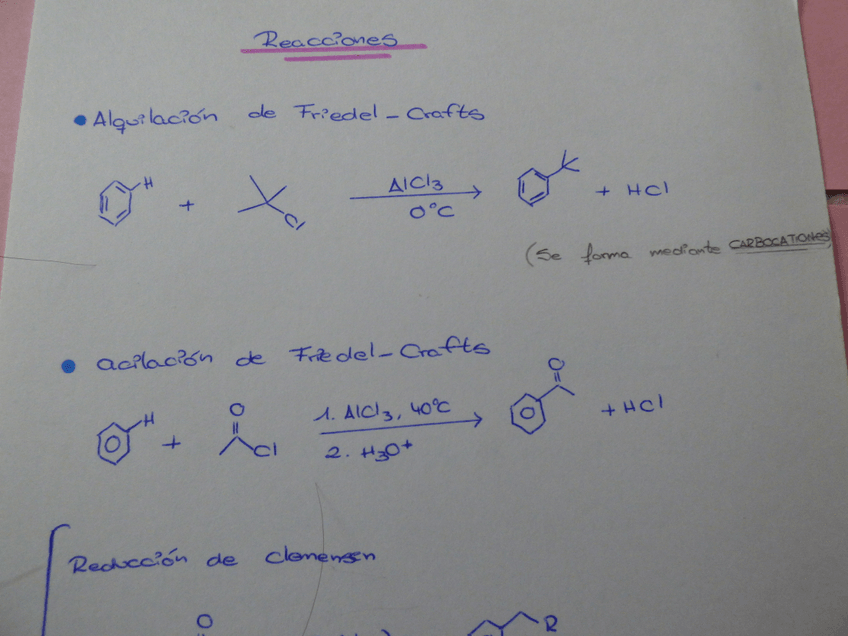 Reacciones
• Alquilación de Friedel-Crafts
H + Cl AlCl3 0°C + HCl
(Se forma mediante CARBOCATIONES)
• acilación de Friedel-Crafts
H + O Cl 1. AlCl3, 40°C 2. H3O+ O + HCl
Reducción de clemensen
O R